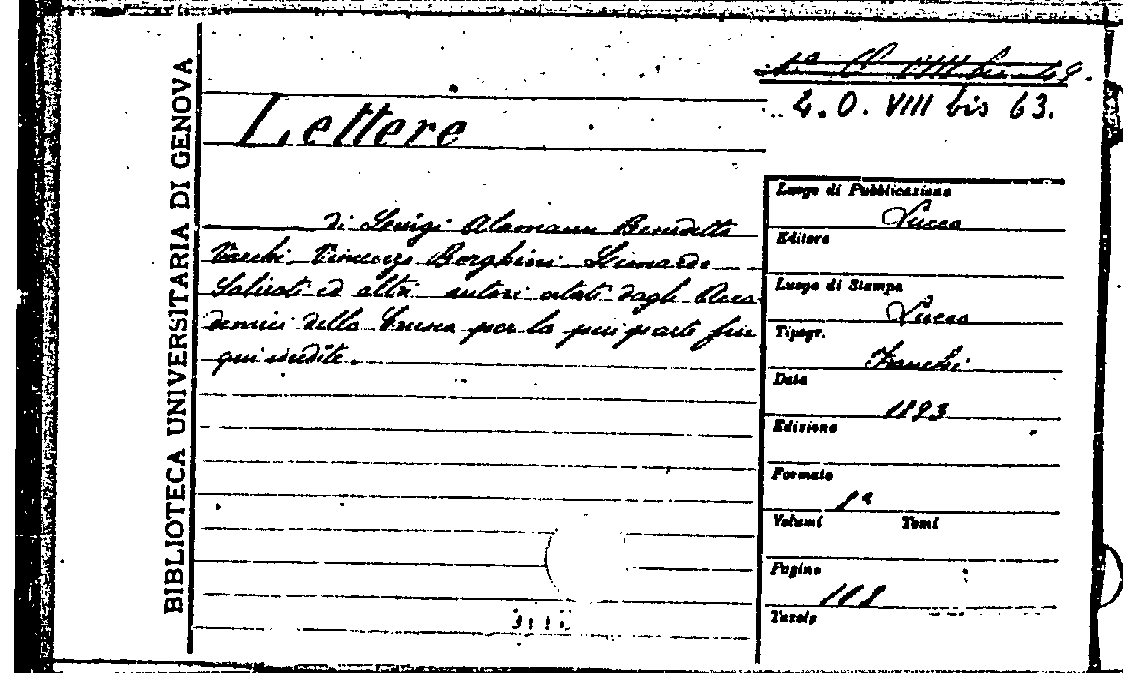 BIBLIOTECA UNIVERSITARIA DI GENOVA
4. O. VIII bis 63.
Lettere
di Luigi Alamanni Benedetto
Varchi Vincenzo Borghini Lionardo
Salviati ed altri autori citati dagli Acca
demici della Crusca per la più parte fin
qui inedite.
Luogo di Pubblicazione
Lucca
Editore
Luogo di Stampa
Lucca
Tipogr.
Franchi
Data
Edizione
Formato
8ª
Volumi Tomi
Pagine
Tavole